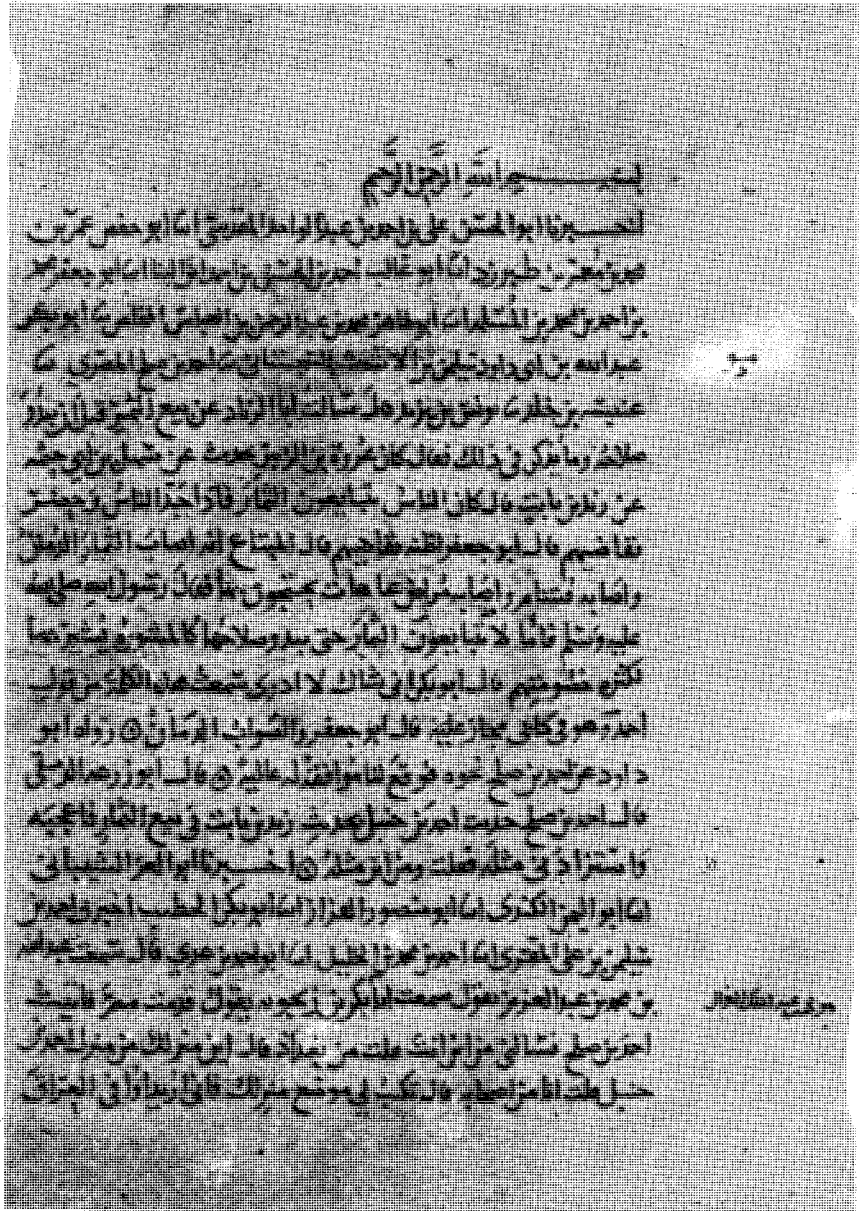 بسم الله الرحمن الرحيم
اخبرنا ابو الحسن علي بن احمد بن عبد الواحد المقدسي انا ابو حفص عمر بن
محمد بن معمر بن طبرزد انا ابو غالب احمد بن الحسن بن احمد بن البنا انا ابو جعفر محمد
بن احمد بن محمد بن المسلمة انا ابو طاهر محمد بن عبد الرحمن بن العباس المخلص نا ابو بكر
عبد الله بن ابي داود سليمن بن الاشعث السجستاني نا احمد بن صلح المصري نا
عنبسه بن خلد نا يونس بن يزيد قال سالت ابا الزناد عن بيع الثمر قبل ان يبدو
صلاحه وما يذكر في ذلك فقال كان عروة بن الزبير يحدث عن سهل بن ابي حثمه
عن زيد بن ثابت قال كان الناس يتبايعون الثمار فاذا جد الناس وحضر
تقاضيهم قال ابو جعفر لعله تقاضيهم قال المبتاع انه اصاب الثمار الدمان
واصابه قشام واصابه مراض عاهات يحتجون بها قال رسول الله صلى الله
عليه وسلم فاما لا تتبايعون الثمار حتى يبدو صلاحها كالمشورة يشير بها
لكثرة خصومتهم قال ابو بكر اني شاك لا ادري سمعت هذه الكلمة من قول
احمد وهو في كتابي مجاز عليه قال ابو جعفر والصواب الدمان رواه ابو
داود عن احمد بن صلح نحوه فوقع لنا موافقة له عالية قال ابو زرعه الدمشقي
قال احمد بن صلح حدثت احمد بن حنبل بحديث زيد بن ثابت في بيع الثمار فاعجبه
واستزادني مثله فقلت ومن اين مثله اخبرنا ابو العز الشيباني
انا ابو اليمن الكندي انا ابو منصور القزاز انا ابو بكر الخطيب اخبرني احمد بن
سليمن بن علي المقري انا احمد بن محمد بن الخليل انا ابو احمد بن عدي قال سمعت عبد الله
بن محمد بن عبد العزيز يقول سمعت ابا بكر بن زنجويه يقول قدمت مصر فاتيت
احمد بن صلح فسالني من اين انت قلت من بغداد قال اين منزلك من منزل احمد بن
حنبل قلت انا من اصحابه قال تكتب لي موضع منزلك فاني اريد اوافي العراق